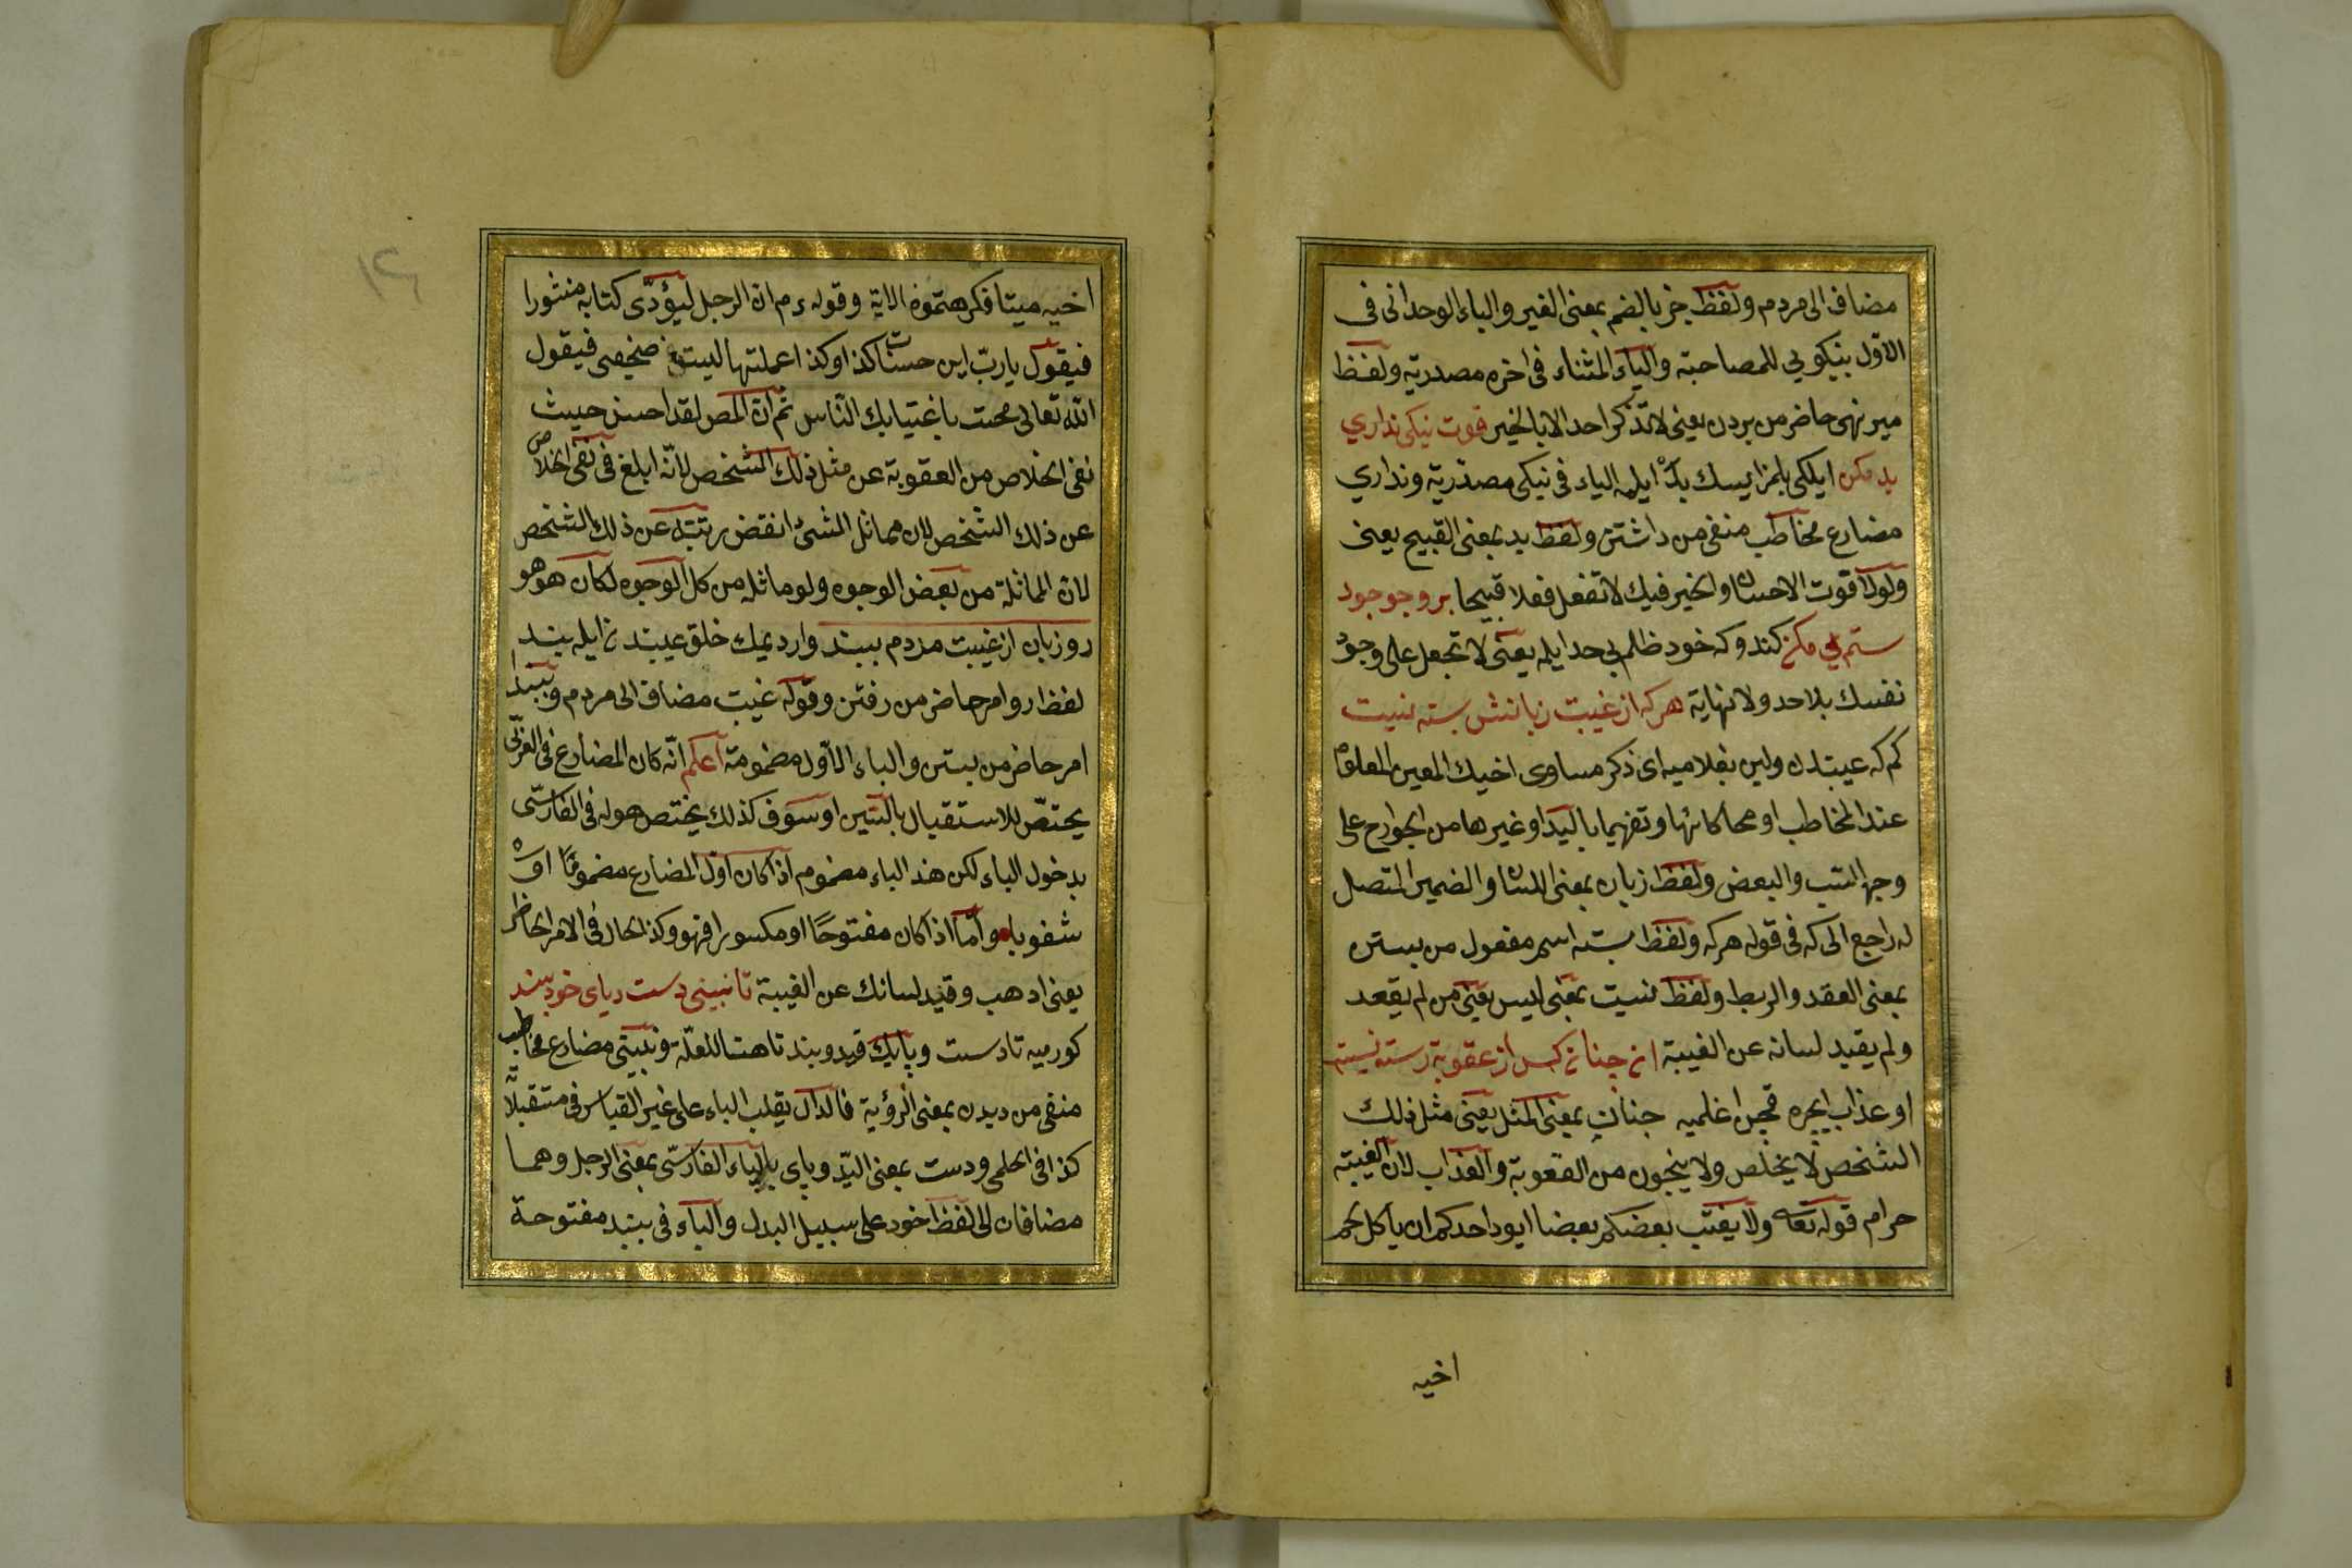 مضاف الى مردم ولفظ جز بالضم بمعنى الغير والباء الوحدانى فى
الاول بنيكويى للمصاحبة والياء المثناء فى اخره مصدرية ولفظ
مبر نهى حاضر من بردن يعنى لا تذكر احدا الا بالخير قوت نيكى نداري
بد مكن ايلكى بلمز ايسك يد ايله الياء فى نيكى مصدرية ونداري
مضارع مخاطب منفى من داشتن ولفظ بد بمعنى القبيح يعنى
ولولا قوت الاحسان والخير فيك لا تفعل فعلا قبيحا بر وجو جود
ستم بى مكن كندوكه خود ظلم بى حد ايله يعنى لا تجعل على وجود
نفسك بلا حد ولا نهاية هركه از غيبت زبانش بسته نيست
كم كه عيبتدن ولين بغلاميه اى ذكر مساوى اخيك المعين المعلوم
عند المخاطب او محاكاتها وتفهيما باليد او غيرها من الجوارح على
وجه السب والبعض ولفظ زبان بمعنى اللسان والضمير المتصل
له راجع الى كه فى قوله هركه ولفظ بسته اسم مفعول من بستن
بمعنى العقد والربط ولفظ نيست بمعنى ليس يعنى من لم يقعد
ولم يقيد لسانه عن الغيبة انچنان كس از عقوبة رسته نيست
او عذاب ايچره قچن اغلميه چنان بمعنى المثل يعنى مثل ذلك
الشخص لا يخلص ولا ينجون من القعوبة والعذاب لان الغيبته
حرام قوله تعه ولا يغتب بعضكم بعضا ايود احدكم ان ياكل لحم
اخيه
١٤
اخيه ميتا فكرهتموه الاية وقوله ءم ان الرجل ليؤدى كتابه منثورا
فيقول يارب اين حسنات كذا وكذا عملتها ليست فى صحيفى فيقول
الله تعالى محيت باغتيابك الناس ثم ان المص لقد احسن حيث
نفى الخلاص من العقوبة عن مثل ذلك الشخص لانه ابلغ فى نفى الخلاص
عن ذلك الشخص لان مماثل الشئ انقض رتبته عن ذلك الشخص
لان المماثلة من بعض الوجوه ولو ماثله من كل الوجوه لكان هو هو
رو زبان از غيبت مردم ببند وار ديمك خلق عيبند ن ايله بند
لفظ رو امر حاضر من رفتن وقوله غيبت مضاف الى مردم وببند
امر حاضر من بستن والباء الاول مضمومة اعلم انه كان المضارع فى العربى
يختص للاستقبال بالسين او سوف كذلك يختص هو له فى الفارسى
بدخول الباء لكن هند الباء مضموم اذا كان اول المضارع مضموما او
شفويا واما اذا كان مفتوحا او مكسورا فهو وكذ الحال فى الامر الحاظر
يعنى ادهب وقيد لسانك عن الغيبة تا نبينى دست وپاى خود ببند
كورميه تا دست وپايك قيد وبند تا هنا للعلة ونبينى مضارع مخاطب
منفى من ديدن بمعنى الرؤية فالدال يقلب الباء على غير القياس فى مستقبله
كذا فى الحلمى ودست بمعنى اليد وپاى بالباء الفارسى بمعنى الرجل وهما
مضافان الى لفظ خود على سبيل البدل والباء فى ببند مفتوحة